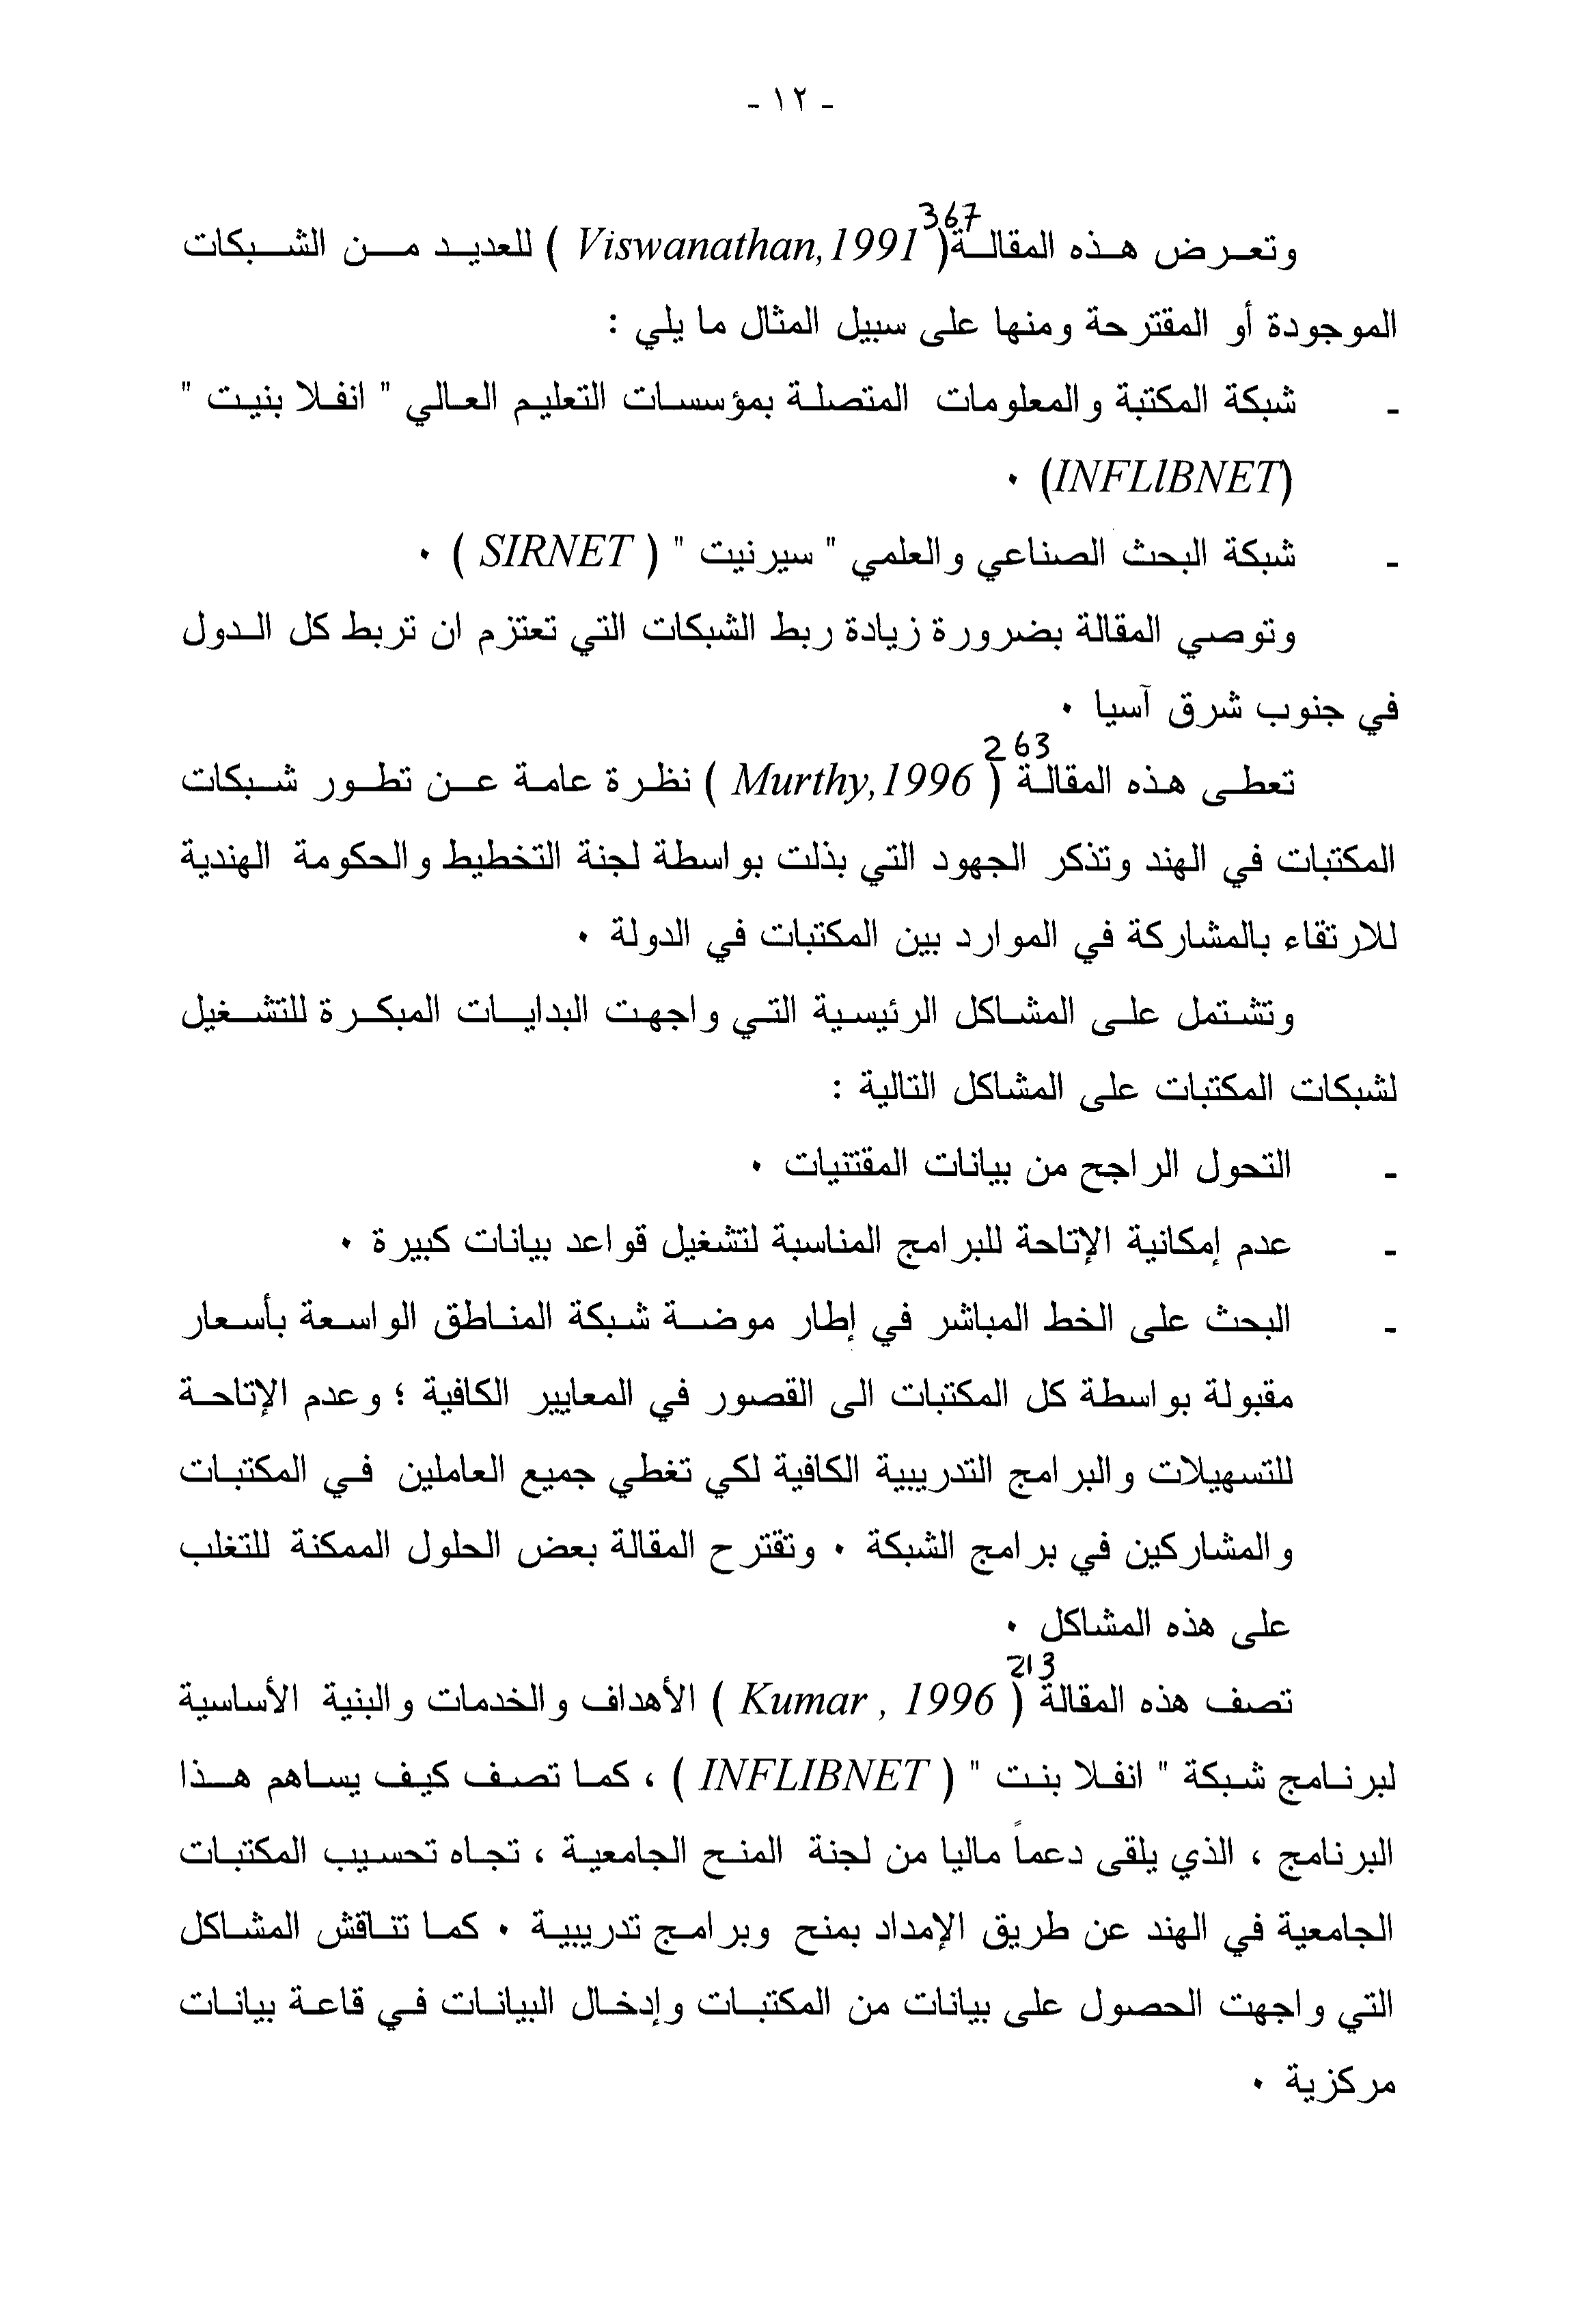 - ١٢ -
وتعرض هذه المقالة( Viswanathan,1991 ) 367 للعديد من الشبكات
الموجودة أو المقترحة ومنها على سبيل المثال ما يلي :
- شبكة المكتبة والمعلومات المتصلة بمؤسسات التعليم العالي " انفلا بنيت "
(INFLIBNET) .
- شبكة البحث الصناعي والعلمي " سيرنيت " ( SIRNET ) .
وتوصي المقالة بضرورة زيادة ربط الشبكات التي تعتزم ان تربط كل الدول
في جنوب شرق آسيا .
تعطى هذه المقالة ( Murthy,1996 ) 263 نظرة عامة عن تطور شبكات
المكتبات في الهند وتذكر الجهود التي بذلت بواسطة لجنة التخطيط والحكومة الهندية
للارتقاء بالمشاركة في الموارد بين المكتبات في الدولة .
وتشتمل على المشاكل الرئيسية التي واجهت البدايات المبكرة للتشغيل
لشبكات المكتبات على المشاكل التالية :
- التحول الراجح من بيانات المقتنيات .
- عدم إمكانية الإتاحة للبرامج المناسبة لتشغيل قواعد بيانات كبيرة .
- البحث على الخط المباشر في إطار موضة شبكة المناطق الواسعة بأسعار
مقبولة بواسطة كل المكتبات الى القصور في المعايير الكافية ؛ وعدم الإتاحة
للتسهيلات والبرامج التدريبية الكافية لكي تغطي جميع العاملين في المكتبات
والمشاركين في برامج الشبكة . وتقترح المقالة بعض الحلول الممكنة للتغلب
على هذه المشاكل .
تصف هذه المقالة ( Kumar , 1996 ) 213 الأهداف والخدمات والبنية الأساسية
لبرنامج شبكة " انفلا بنت " ( INFLIBNET ) ، كما تصف كيف يساهم هذا
البرنامج ، الذي يلقى دعماً ماليا من لجنة المنح الجامعية ، تجاه تحسيب المكتبات
الجامعية في الهند عن طريق الإمداد بمنح وبرامج تدريبية . كما تناقش المشاكل
التي واجهت الحصول على بيانات من المكتبات وإدخال البيانات في قاعة بيانات
مركزية .